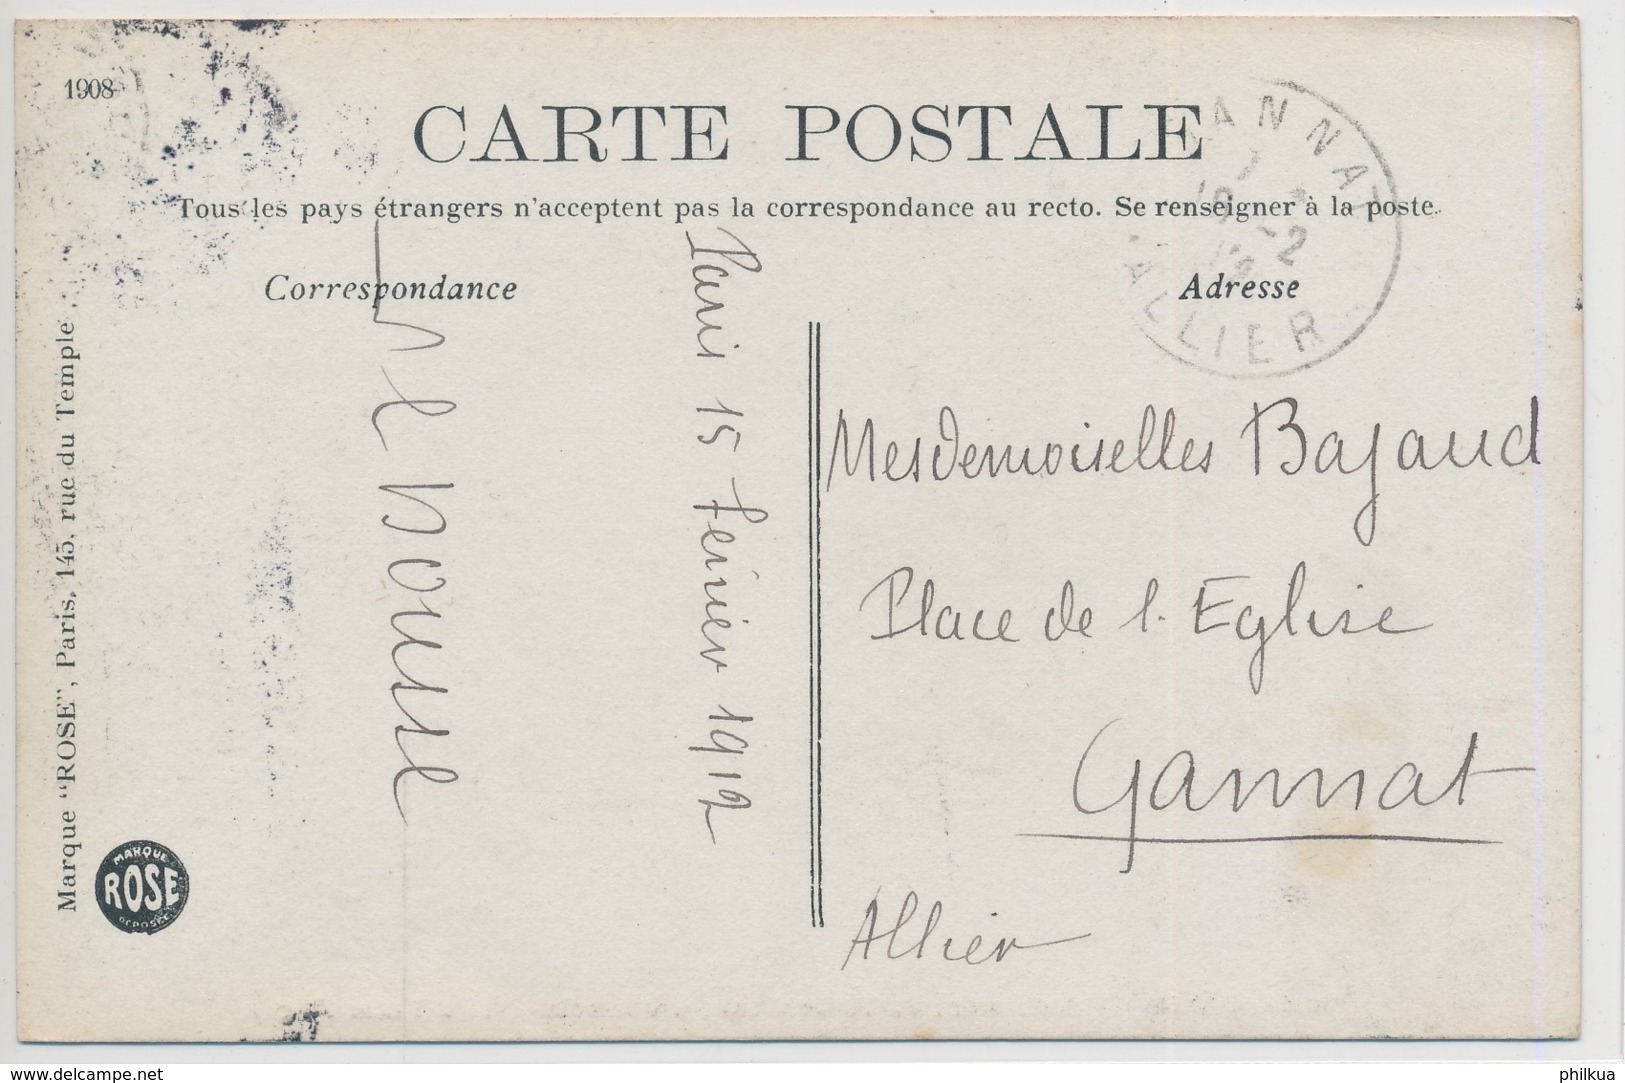 1908
CARTE POSTALE
Tous les pays étrangers n'acceptent pas la correspondance au recto. Se renseigner à la poste.
Correspondance
Adresse
ANNAT
-2
ALLIER
Paris 15 Février 1912
Mesdemoiselles Bajaud
Place de l'Eglise
Gannat
Allier
Marque "ROSE", Paris, 145, rue du Temple
MARQUE
ROSE
DEPOSÉE
www.delcampe.net
philkua